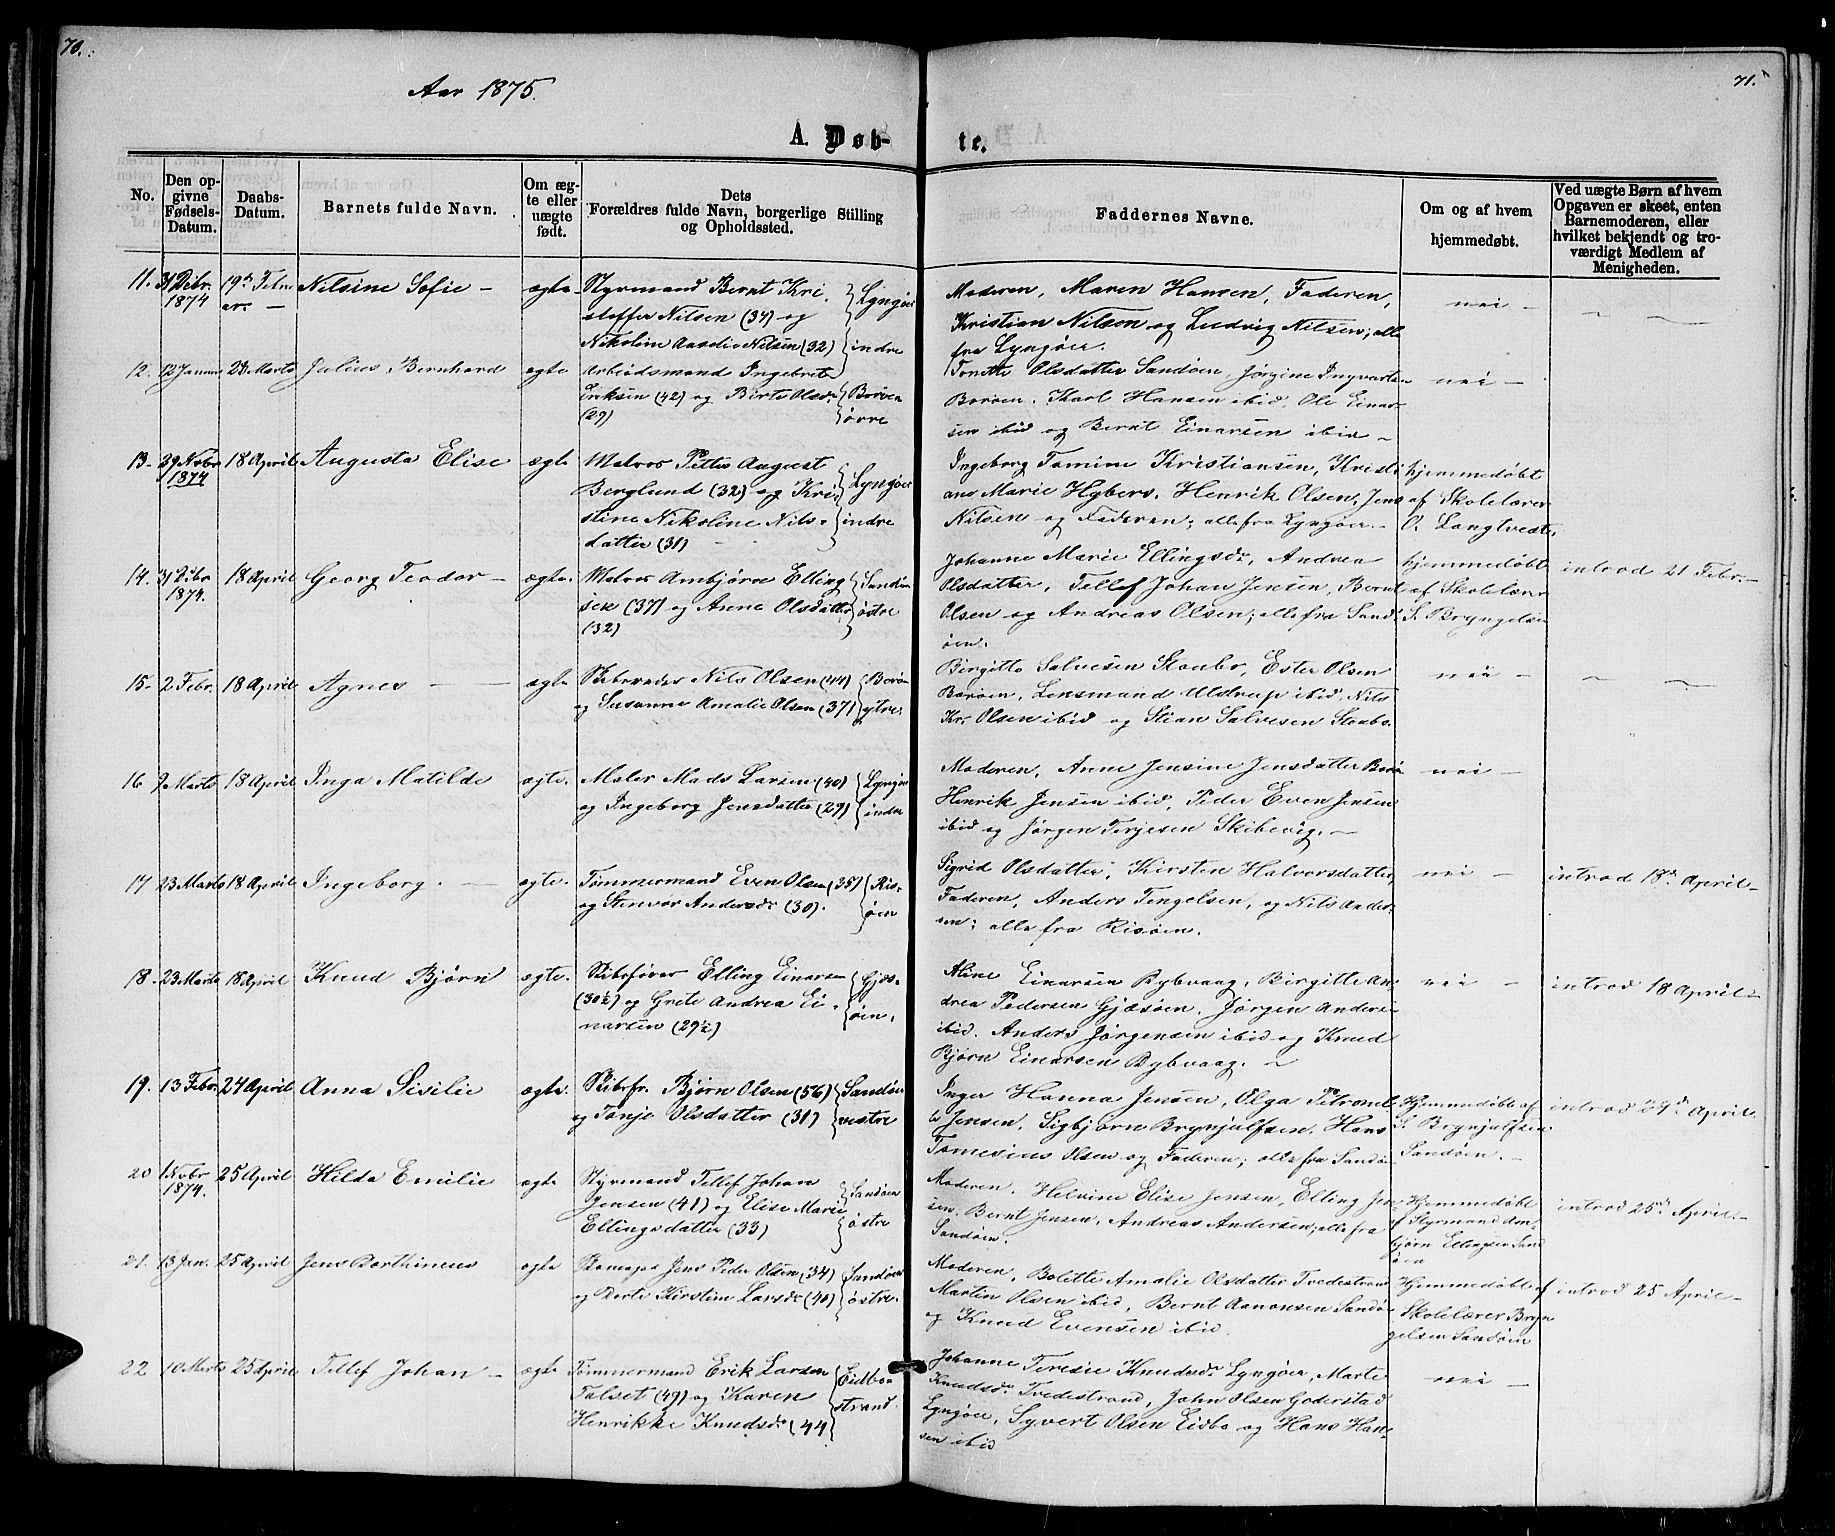 70.
71.
Aar 1875.
A. Døb-
te.
No.
Den op-
givne
Fødsels-
Datum.
Daabs-
Datum.
Barnets fulde Navn.
Om æg-
te eller
uægte
født.
Dets
Forældres fulde Navn, borgerlige Stilling
og Opholdssted.
Faddernes Navne.
Om og af hvem
hjemmedøbt.
Ved uægte Børn af hvem
Opgaven er skeet, enten
Barnemoderen, eller
hvilket bekjendt og tro-
værdigt Medlem af
Menigheden.
11. 31 Dcbr. 1874
19de Febru
ar. —
Nilsine Sofie —
ægte
Styrmand Bernt Kri
stoffer Nilsen (34) og
Nikoline Nilsen (32)
Lyngøer
indre
Moderen, Maren Hansen, Faderen,
Kristian Nilsen og Ludvig Nilsen; alle
fra Lyngøer.
nei —
12. 12 Januar
28 Marts
Julius Bernhard
ægte
Arbeidsmand Ingebret
Eriksen (42) og Berte Olsdr
(29)
Borøen
øvre
Tonette Olsdatter Sandøen, Jørgine Ingvartsen
Borøen. Karl Hansen ibid, Ole Einar-
sen ibid og Bernt Einarsen ibid —
nei —
13. 29 Novbr 1874
18 April
Augusta Elise
ægte
Matros Petter August
Berglund (32) og Kri-
stine Nikoline Nils-
datter (31)
Lyngøer
indre
Ingeborg Tomine Kristiansen, Kristi
ane Marie Hybers, Henrik Olsen, Jens
Nilsen og Faderen; alle fra Lyngøer. —
hjemmedøbt
af Skolelærer
O. Langtvedt.
14. 31 Dcbr 1874.
18 April
Georg Teodor —
ægte.
Matros Ambjørn Elling
sen (37) og Anne Olsdatter
(32)
Sandøen
østre
Johanne Marie Ellingsdr, Andrea
Olsdatter, Tellef Johan Jensen, Bernt
Olsen og Andreas Olsen; alle fra Sand
øen.
hjemmedøbt
af Skolelærer
S. Bryngelsen
introd 21 Febr. —
15. 2 Febr.
18 April
Agnes —
ægte
Skibsreder Nils Olsen (44)
og Susanne Amalie Olsen (37)
Borøen
ytre.
Birgitte Salvesen Staubo, Ester Olsen
Borøen, Lensmand Ulstrup ibid, Nils
Kr. Olsen ibid og Stian Salvesen Staubo.
nei —
16 9 Marts
18 April
Inga Matilde
ægte.
Maler Mads Larsen (40)
og Ingeborg Jensdatter (29)
Lyngøer
indre
Moderen, Anne Jensine Jensdatter Borø
Henrik Jensen ibid, Peder Even Jensen
ibid og Jørgen Terjesen Skibevig. —
nei —
17 23 Marts
18 April
Ingeborg. —
ægte.
Tømmermand Even Olsen (38)
og Stenvor Andersdr (30).
Ris-
øen
Sigrid Olsdatter, Kirsten Halvorsdatter,
Faderen, Anders Tengelsen, og Nils Ander-
sen; alle fra Risøen.
nei —
introd 18de April —
18. 23 Marts
18 April
Knud Bjørn
ægte.
Skibsfører Elling Einarsen
(30½) og Grete Andrea Ei-
narsen (29½)
Gjæs-
øen.
Aline Einarsen Dybvaag, Birgitte An-
drea Pedersen Gjæsøen, Jørgen Anders
ibid. Anders Jørgensen ibid og Knud
Bjørn Einarsen Dybvaag. —
nei —
introd 18 April —
19. 13 Febr.
24 April
Anna Sisilie
ægte.
Skibsfr. Bjørn Olsen (56)
og Tonje Olsdatter (31)
Sandøen
vestre
Inger Hanna Jensen, Olga Petronel
le Jensen, Sigbjørn Brynjulfsen, Hans
Tomesius Olsen og Faderen; alle fra Sandø
Hjemmedøbt af
S. Brynjulfsen
Sandøen. —
introd 24de April
20 1 Novbr 1874.
25 April
Hilda Emilie
ægte
Styrmand Tellef Johan
Jensen (41) og Elise Marie
Ellingsdatter (33)
Sandøen
østre
Moderen, Helvine Elise Jensen, Elling Jen
sen, Bernt Jensen, Andreas Andersen; alle fra
Sandøen.
Hjemmedøbt
af Styrmand Am
bjørn Ellingsen Sand
øen
introd 25de April. —
21. 13 Jan.
25 April
Jens Barthineus
ægte
Skomager Jens Peder Olsen (34)
og Dorte Kirstine Larsdr (40)
Sandøen
østre.
Moderen, Bolette Amalie Olsdatter Tvedestrand
Martin Olsen ibid, Bernt Aanonsen Sandø
og Knud Evensen ibid.
Hjemmedøbt af
Skolelærer Bryn
gelsen Sandøen
introd 25 April —
22 10 Marts
25 April
Tellef Johan —
ægte
Tømmermand Erik Larsen
Talset (49) og Karen
Henrikke Knudsdr (44
Eidbo
strand.
Johanne Teresie Knudsdr Lyngøer, Marte
Knudsdr Tvedestrand, John Olsen Goderstad
Lyngøer, Syvert Olsen Eidbo og Hans Han-
sen ibid
nei —